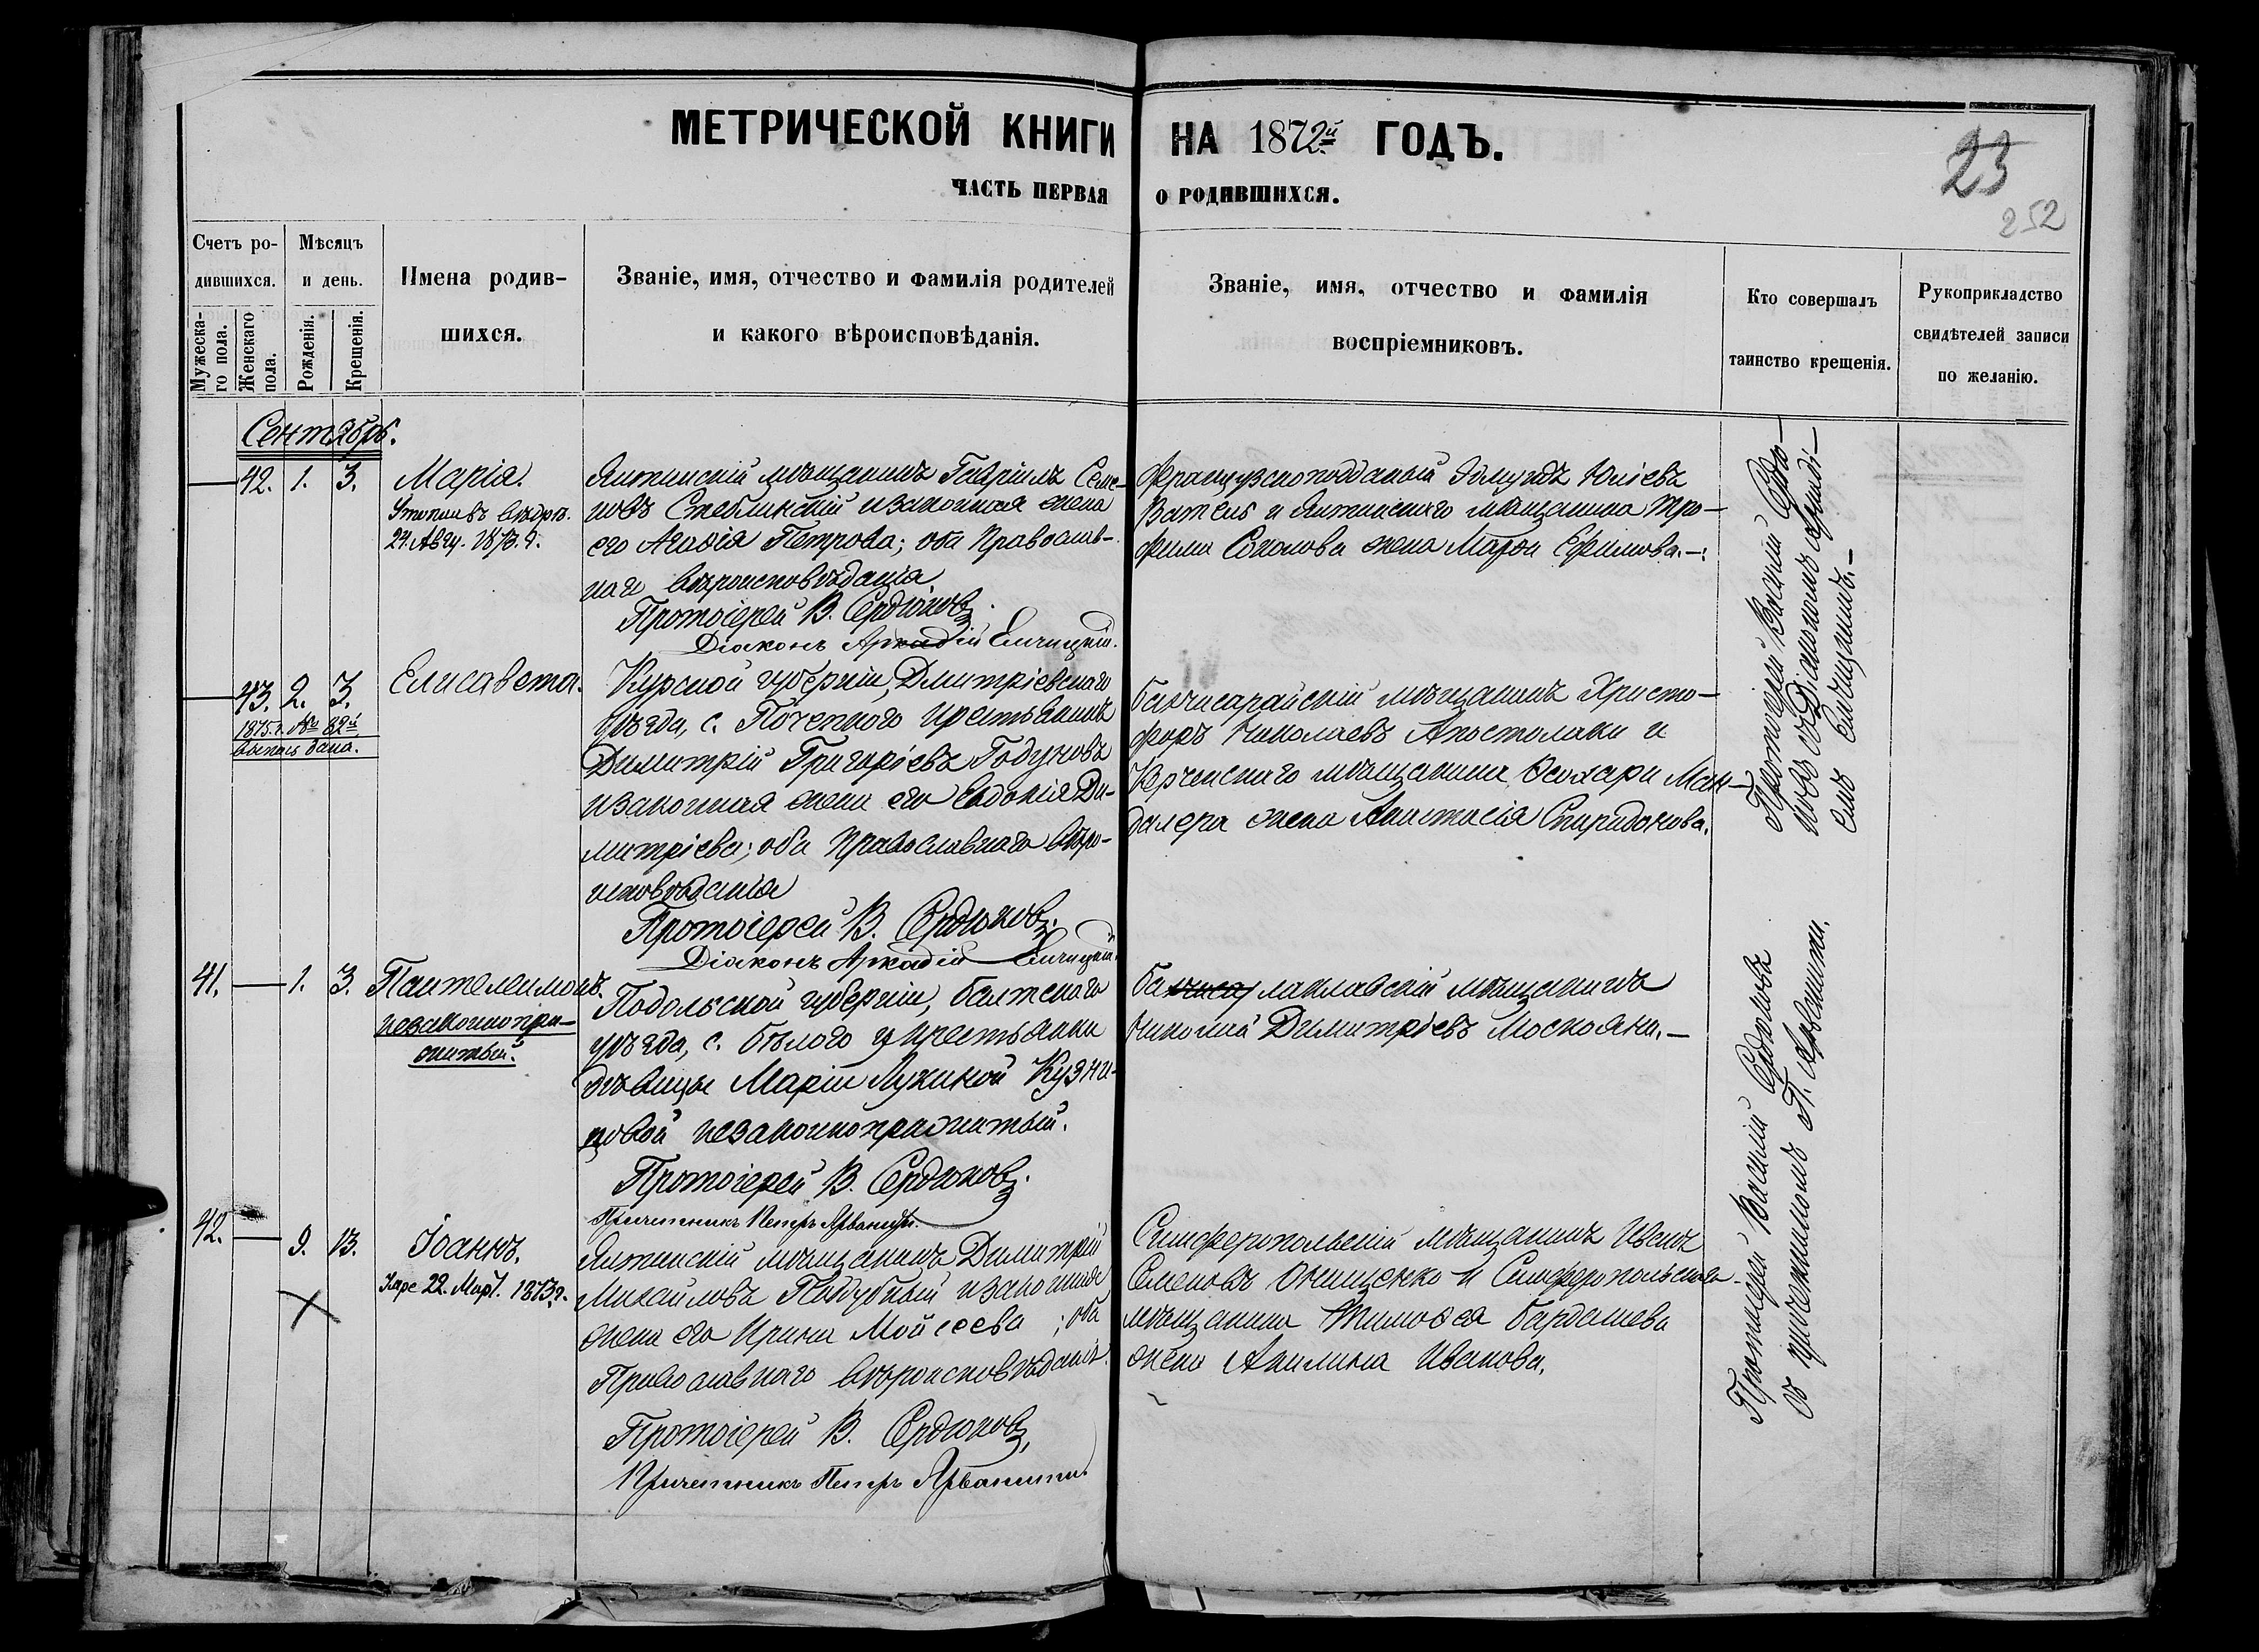 МЕТРИЧЕСКОЙ КНИГИ НА 1872й ГОДЪ.
ЧАСТЬ ПЕРВАЯ О РОДИВШИХСЯ.
23
252
Счетъ ро-
дившихся.
Мужеска-
го пола.
Женскаго
пола.
Мѣсяцъ
и день.
Рожденія.
Крещенія.
Имена родив-
шихся.
Званіе, имя, отчество и фамилія родителей
и какого вѣроисповѣданія.
Званіе, имя, отчество и фамилія
воспріемниковъ.
Кто совершалъ
таинство крещенія.
Рукоприкладство
свидѣтелей записи
по желанію.
Сентябрь.
— 42. 1. 3.
Марія.
29. Авгу. 1873. г.
Ялтинскій мѣщанинъ Гавріилъ Семе-
новъ Стеблинскій и законная жена
его Агафія Петрова; оба Православ-
наго вѣроисповѣданія.
Протоіерей В. Сердюковъ.
Діаконъ Аркадій Ельчицкій.
Французскоподданый Эдмундъ Юліевъ
Ватель и Ялтинскаго мѣщанина Тро-
фима Соколова жена Марфа Ефимова.—:
Протоіерей Василій Сердю-
ковъ съ Діакономъ Аркаді-
емъ Ельчицкимъ.—
— 43. 2. 3.
1875 г. № 62й
выпись дана.
Елисавета.
Курской губерніи, Дмитріевскаго
уѣзда, с. Почепного крестьянинъ
Димитрій Григоріевъ Годуновъ
и законная жена его Евдокія Ди-
митріева; оба Православнаго вѣро-
исповѣданія
Протоіерей В. Сердюковъ.
Діаконъ Аркадій Ельчицкій
Бахчисарайскій мѣщанинъ Христо-
форъ Николаевъ Апостолаки и
Керченскаго мѣщанина Ѳеохари Ман-
далера жена Анастасія Спиридонова.
41. — 1. 3.
Пантелеимонъ.
незаконнопри-
житый.
Подольской губерніи, Балтскаго
уѣзда, с. Бѣлого у крестьянки
дѣвицы Маріи Лукиной Кузни-
цовой незаконноприжитый.
Протоіерей В. Сердюковъ.
Причетникъ Петръ Арванити.
Балаклавскій мѣщанинъ
Николай Димитріевъ Москояни.—
Протоіерей Василій Сердюковъ
съ причетникомъ П. Арванити.
42. — 9. 13.
Іоаннъ.
22. Март. 1873 г.
Ялтинскій мѣщанинъ Димитрій
Михаиловъ Поддубный и законная
жена его Ирина Мойсеева; оба
Православнаго вѣроисповѣданія.
Протоіерей В. Сердюковъ,
Причетникъ Петръ Арванити.
Симферопольскій мѣщанинъ Иванъ
Семеновъ Онищенко и Симферопольскаго
мѣщанина Тимофея Бардашева
жена Акилина Иванова.